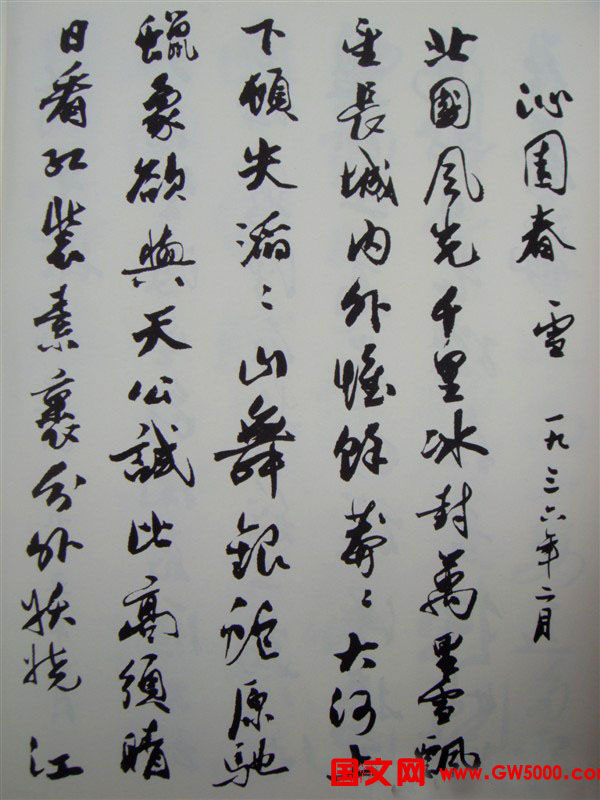 沁園春 雪 一九三六年二月
北國风光千里冰封萬里雪飄
望長城内外惟餘莽〻大河上
下頓失滔〻山舞銀蛇原馳
蠟象欲與天公試比高須晴
日看紅裝素裹分外妖嬈 江
国文网 www.GW5000.com